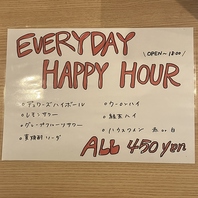 EVERYDAY
\ OPEN~18:00 /
HAPPY HOUR
• デュワーズハイボール
• レモンサワー
• グレープフルーツサワー
• ウーロンハイ
• 緑茶ハイ
• ハウスワイン 赤 or 白
ALL 450 yen